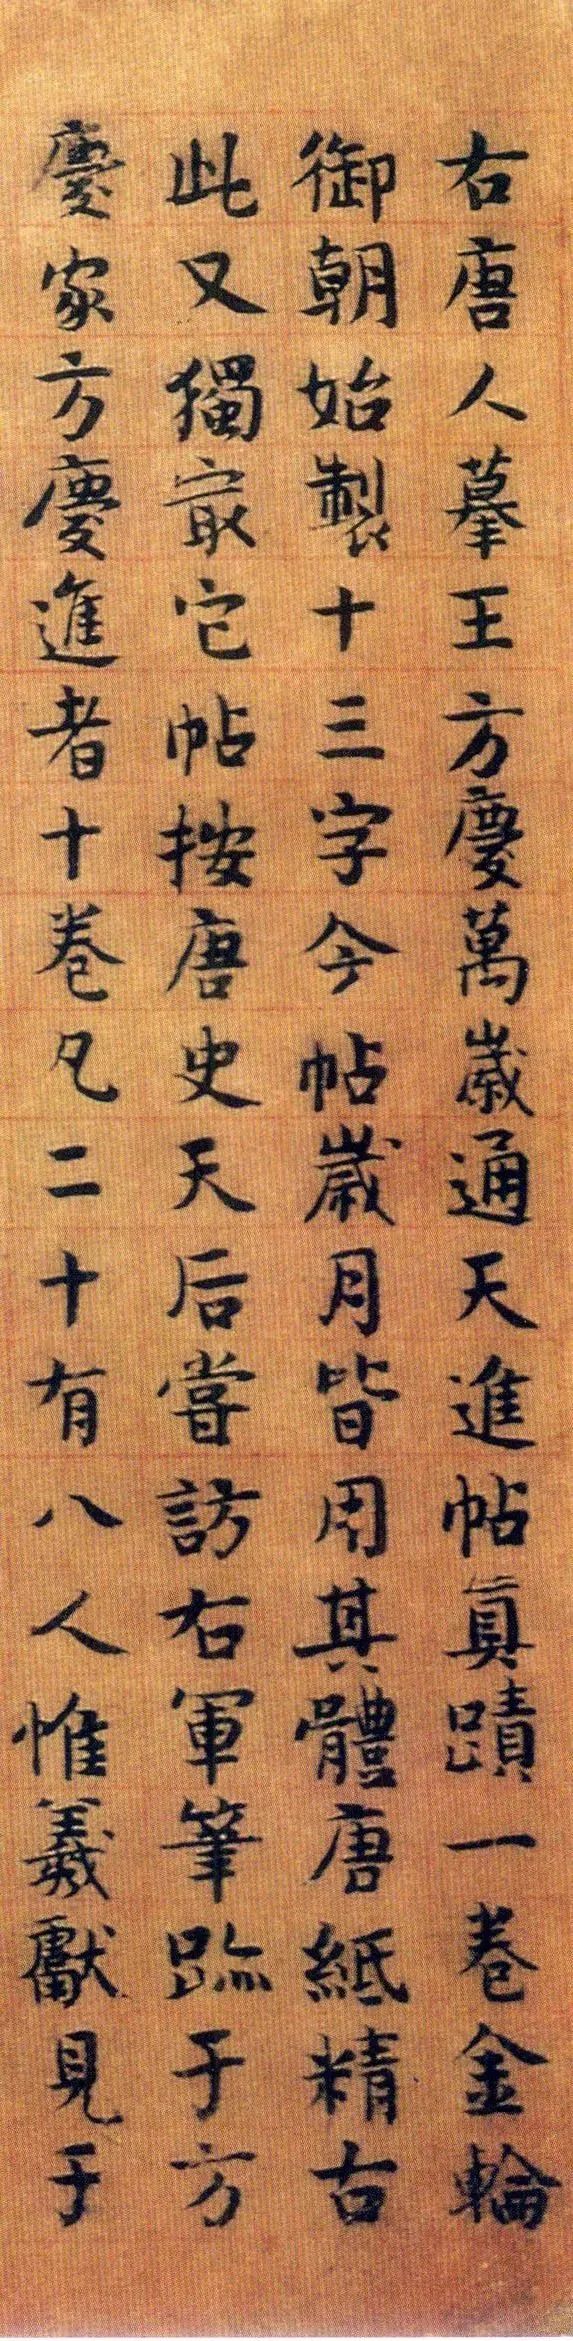 右唐人摹王方慶萬歲通天進帖真蹟一卷金輪
御朝始製十三字今帖歲月皆用其體唐紙精古
此又獨冣它帖按唐史天后嘗訪右軍筆跡于方
慶家方慶進者十卷凡二十有八人惟羲獻見于